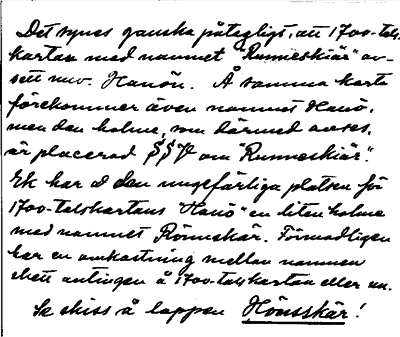 Det synes ganska påtagligt, att 1700-tals
kartan med namnet "Runneskiär" av-
sett nuv. Hanön. Å samma karta
förekommer även namnet Hanö,
men den holme, som därmed avses,
är placerad SSV om "Runneskiär".
Ek har å den ungefärliga platsen för
1700-talskartans "Hanö" en liten holme
med namnet Rönneskär. Förmodligen
har en omkastning mellan namnen
skett antingen å 1700-talskartan eller nu.
Se skiss å lappen Hönsskär!